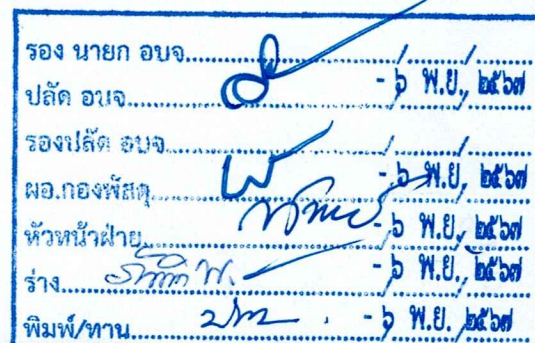 รอง นายก อบจ......................../........../..........
ปลัด อบจ........................ - ๖ พ.ย. ๒๕๖๗
รองปลัด อบจ......................../........../..........
ผอ.กองพัสดุ........................ - ๖ พ.ย. ๒๕๖๗
หัวหน้าฝ่าย........................ - ๖ พ.ย. ๒๕๖๗
ร่าง........................ - ๖ พ.ย. ๒๕๖๗
พิมพ์/ทาน........................ - ๖ พ.ย. ๒๕๖๗